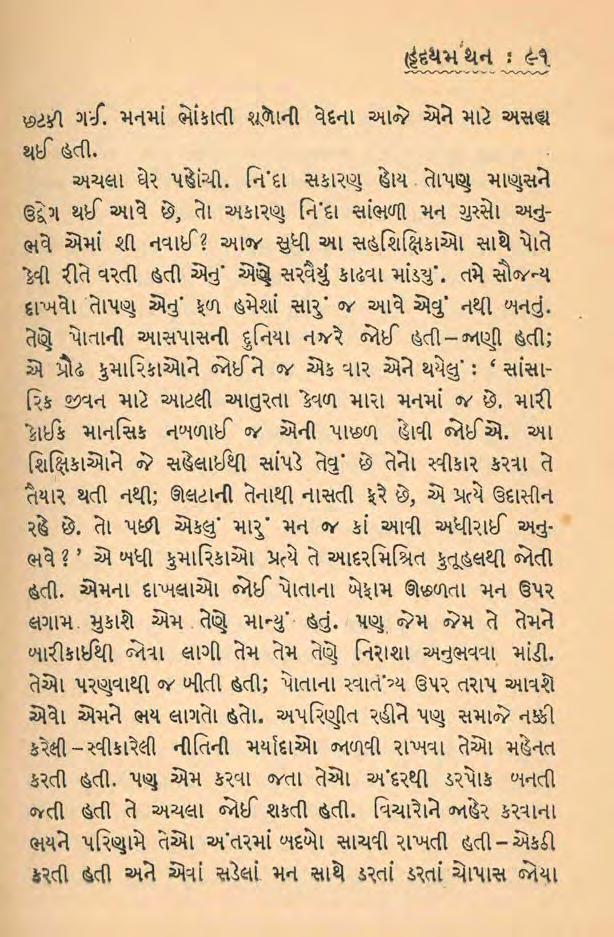 હૃદયમંથન : ૯૧
છટકી ગઈ. મનમાં ભોંકાતી શૂળોની વેદના આજે એને માટે અસહ્ય
થઈ હતી.
અચલા ઘેર પહોંચી. નિંદા સકારણ હોય તોપણ માણસને
ઉદ્વેગ થઈ આવે છે, તો અકારણ નિંદા સાંભળી મન ગુસ્સો અનુ-
ભવે એમાં શી નવાઈ? આજ સુધી આ સહશિક્ષિકાઓ સાથે પોતે
કેવી રીતે વરતી હતી એનું એણે સરવૈયું કાઢવા માંડયું. તમે સૌજન્ય
દાખવો તોપણ એનું ફળ હમેશાં સારું જ આવે એવું નથી બનતું.
તેણે પોતાની આસપાસની દુનિયા નજરે જોઈ હતી–જાણી હતી;
એ પ્રૌઢ કુમારિકાઓને જોઈને જ એક વાર એને થયેલું : ‘ સાંસા-
રિક જીવન માટે આટલી આતુરતા કેવળ મારા મનમાં જ છે. મારી
કોઈક માનસિક નબળાઈ જ એની પાછળ હોવી જોઈએ. આ
શિક્ષિકાઓને જે સહેલાઈથી સાંપડે તેવું છે તેનો સ્વીકાર કરવા તે
તૈયાર થતી નથી; ઊલટાની તેનાથી નાસતી ફરે છે, એ પ્રત્યે ઉદાસીન
રહે છે. તો પછી એકલું મારું મન જ કાં આવી અધીરાઈ અનુ-
ભવે?’ એ બધી કુમારિકાઓ પ્રત્યે તે આદરમિશ્રિત કુતૂહલથી જોતી
હતી. એમના દાખલાઓ જોઈ પોતાના બેફામ ઊછળતા મન ઉપર
લગામ મુકાશે એમ તેણે માન્યું હતું. પણ જેમ જેમ તે તેમને
બારીકાઈથી જોવા લાગી તેમ તેમ તેણે નિરાશા અનુભવવા માંડી.
તેઓ પરણવાથી જ બીતી હતી; પોતાના સ્વાતંત્ર્ય ઉપર તરાપ આવશે
એવો એમને ભય લાગતો હતો. અપરિણીત રહીને પણ સમાજે નક્કી
કરેલી–સ્વીકારેલી નીતિની મર્યાદાઓ જાળવી રાખવા તેઓ મહેનત
કરતી હતી. પણ એમ કરવા જતા તેઓ અંદરથી ડરપોક બનતી
જતી હતી તે અચલા જોઈ શકતી હતી. વિચારોને જાહેર કરવાના
ભયને પરિણામે તેઓ અંતરમાં બદબો સાચવી રાખતી હતી–એકઠી
કરતી હતી અને એવાં સડેલાં મન સાથે ડરતાં ડરતાં ચોપાસ જોયા